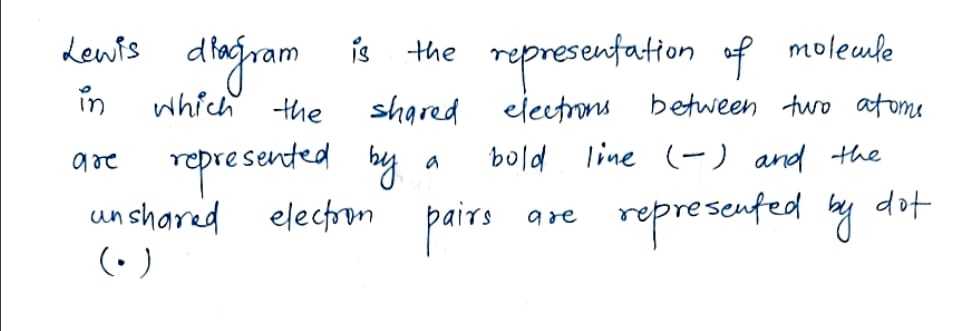 Lewis diagram is the representation of molecule
in which the shared electrons between two atoms
are represented by a bold line (-) and the
unshared electron pairs are represented by dot
(•)